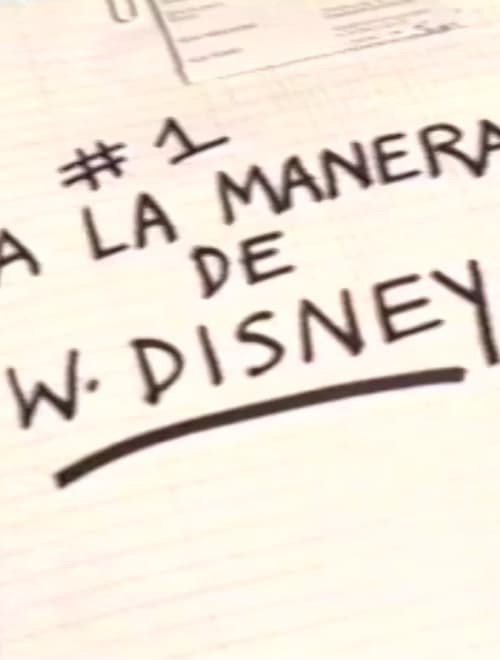 #1
A LA MANERA
DE
W. DISNEY